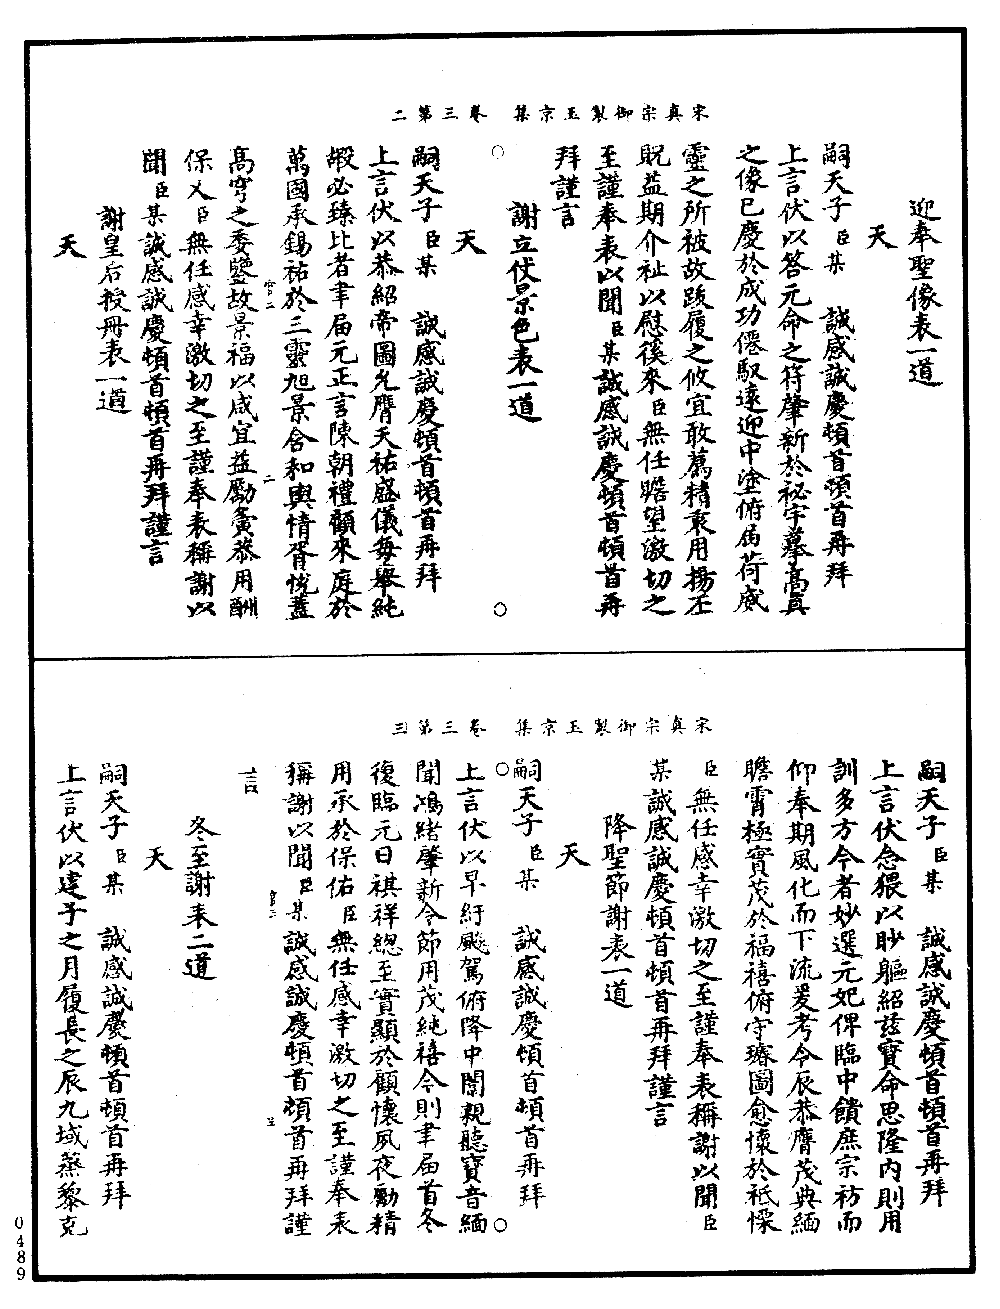 宋真宗御製玉京集　卷三第二
迎奉聖像表一道
天
嗣天子臣某　誠感誠慶頓首頓首再拜
上言伏以答元命之符肇新於祕宇摹高真
之像已慶於成功僊馭遠迎中塗俯屆荷威
靈之所被故踐履之攸宜敢薦精衷用揚丕
貺益期介祉以慰徯來臣無任瞻望激切之
至謹奉表以聞臣某誠感誠慶頓首頓首再
拜謹言
謝立仗景色表一道
天
嗣天子臣某　誠感誠慶頓首頓首再拜
上言伏以恭紹帝圖允膺天祐盛儀每舉純
嘏必臻比者聿屆元正言陳朝禮顧來庭於
萬國承錫祐於三靈旭景含和輿情胥悅蓋
高穹之委鑒故景福以咸宜益勵夤恭用酬
保乂臣無任感幸激切之至謹奉表稱謝以
聞臣某誠感誠慶頓首頓首再拜謹言
謝皇后授冊表一道
天
宋真宗御製玉京集　卷三第三
嗣天子臣某　誠感誠慶頓首頓首再拜
上言伏念猥以眇軀紹茲寶命思隆內則用
訓多方今者妙選元妃俾臨中饋庶宗祊而
仰奉期風化而下流爰考令辰恭膺茂典緬
瞻霄極實茂於福禧俯守璿圖愈懷於祗慄
臣無任感幸激切之至謹奉表稱謝以聞臣
某誠感誠慶頓首頓首再拜謹言
降聖節謝表一道
天
嗣天子臣某　誠感誠慶頓首頓首再拜
上言伏以早紆飈駕俯降中闈親聽寶音緬
聞鴻緒肇新令節用茂純禧今則聿屆首冬
復臨元日祺祥總至實顯於顧懷夙夜勵精
用承於保佑臣無任感幸激切之至謹奉表
稱謝以聞臣某誠感誠慶頓首頓首再拜謹
言
冬至謝表二道
天
嗣天子臣某　誠感誠慶頓首頓首再拜
上言伏以建子之月履長之辰九域蒸黎克
0489